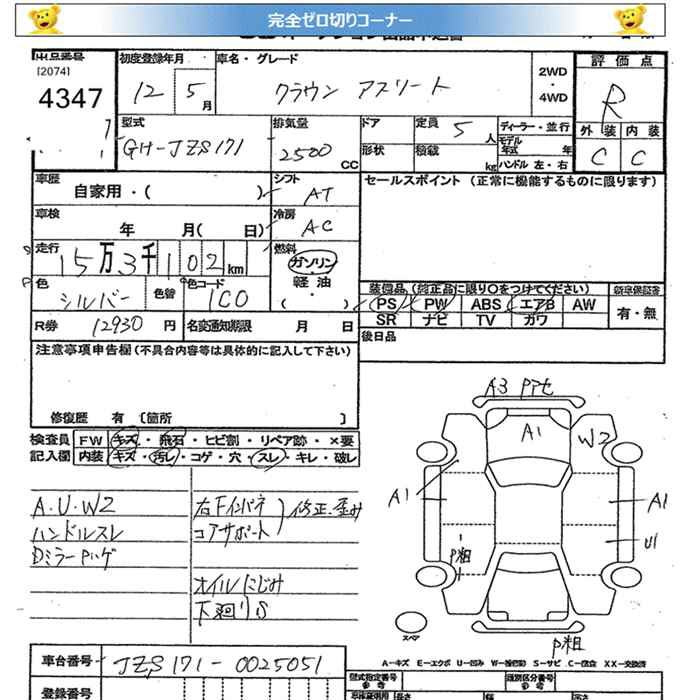 完全ゼロ切りコーナー
出品番号
[2074]
4347
初度登録年月
12 5 月
車名・グレード
クラウン アスリート
2WD
・
4WD
評価点
R
外装 内装
C C
型式
GH-JZS171
排気量
2500 CC
ドア
形状
定員 5 人
積載 kg
ディーラー・並行
モデル年式 年
ハンドル 左・右
車歴
自家用・( )
シフト
AT
セールスポイント (正常に機能するものに限ります)
車検
年 月( 日)
冷房
AC
走行
15万3千102km
燃料
ガソリン
・
軽油
・
( )
色
シルバー
色替
色コード
1C0
装備品(純正品に限り○をつけてください)
新車保証書
PS PW ABS エアB AW
SR ナビ TV カワ
有・無
R券 12930 円
名変通知期限 月 日
後日品
注意事項申告欄(不具合内容等は具体的に記入して下さい)
修復歴 有 〔箇所 〕
検査員
記入欄
FW キズ・飛石・ヒビ割・リペア跡・×要
内装 キズ・汚レ・コゲ・穴・スレ・キレ・破レ
A.U.W2
ハンドルスレ
Dミラーハゲ
右Fインパネ
コアサポート
修正、歪み
オイルにじみ
下廻りS
A3
A1
W2
A1
A1
U1
P粗
P粗
スペア
A-キズ E-エクボ U-凹み W-補修跡 S-サビ C-腐食 XX-交換済
車台番号
JZS171-0025051
登録番号
型式指定番号
参考
類別区分番号
参考
長さ